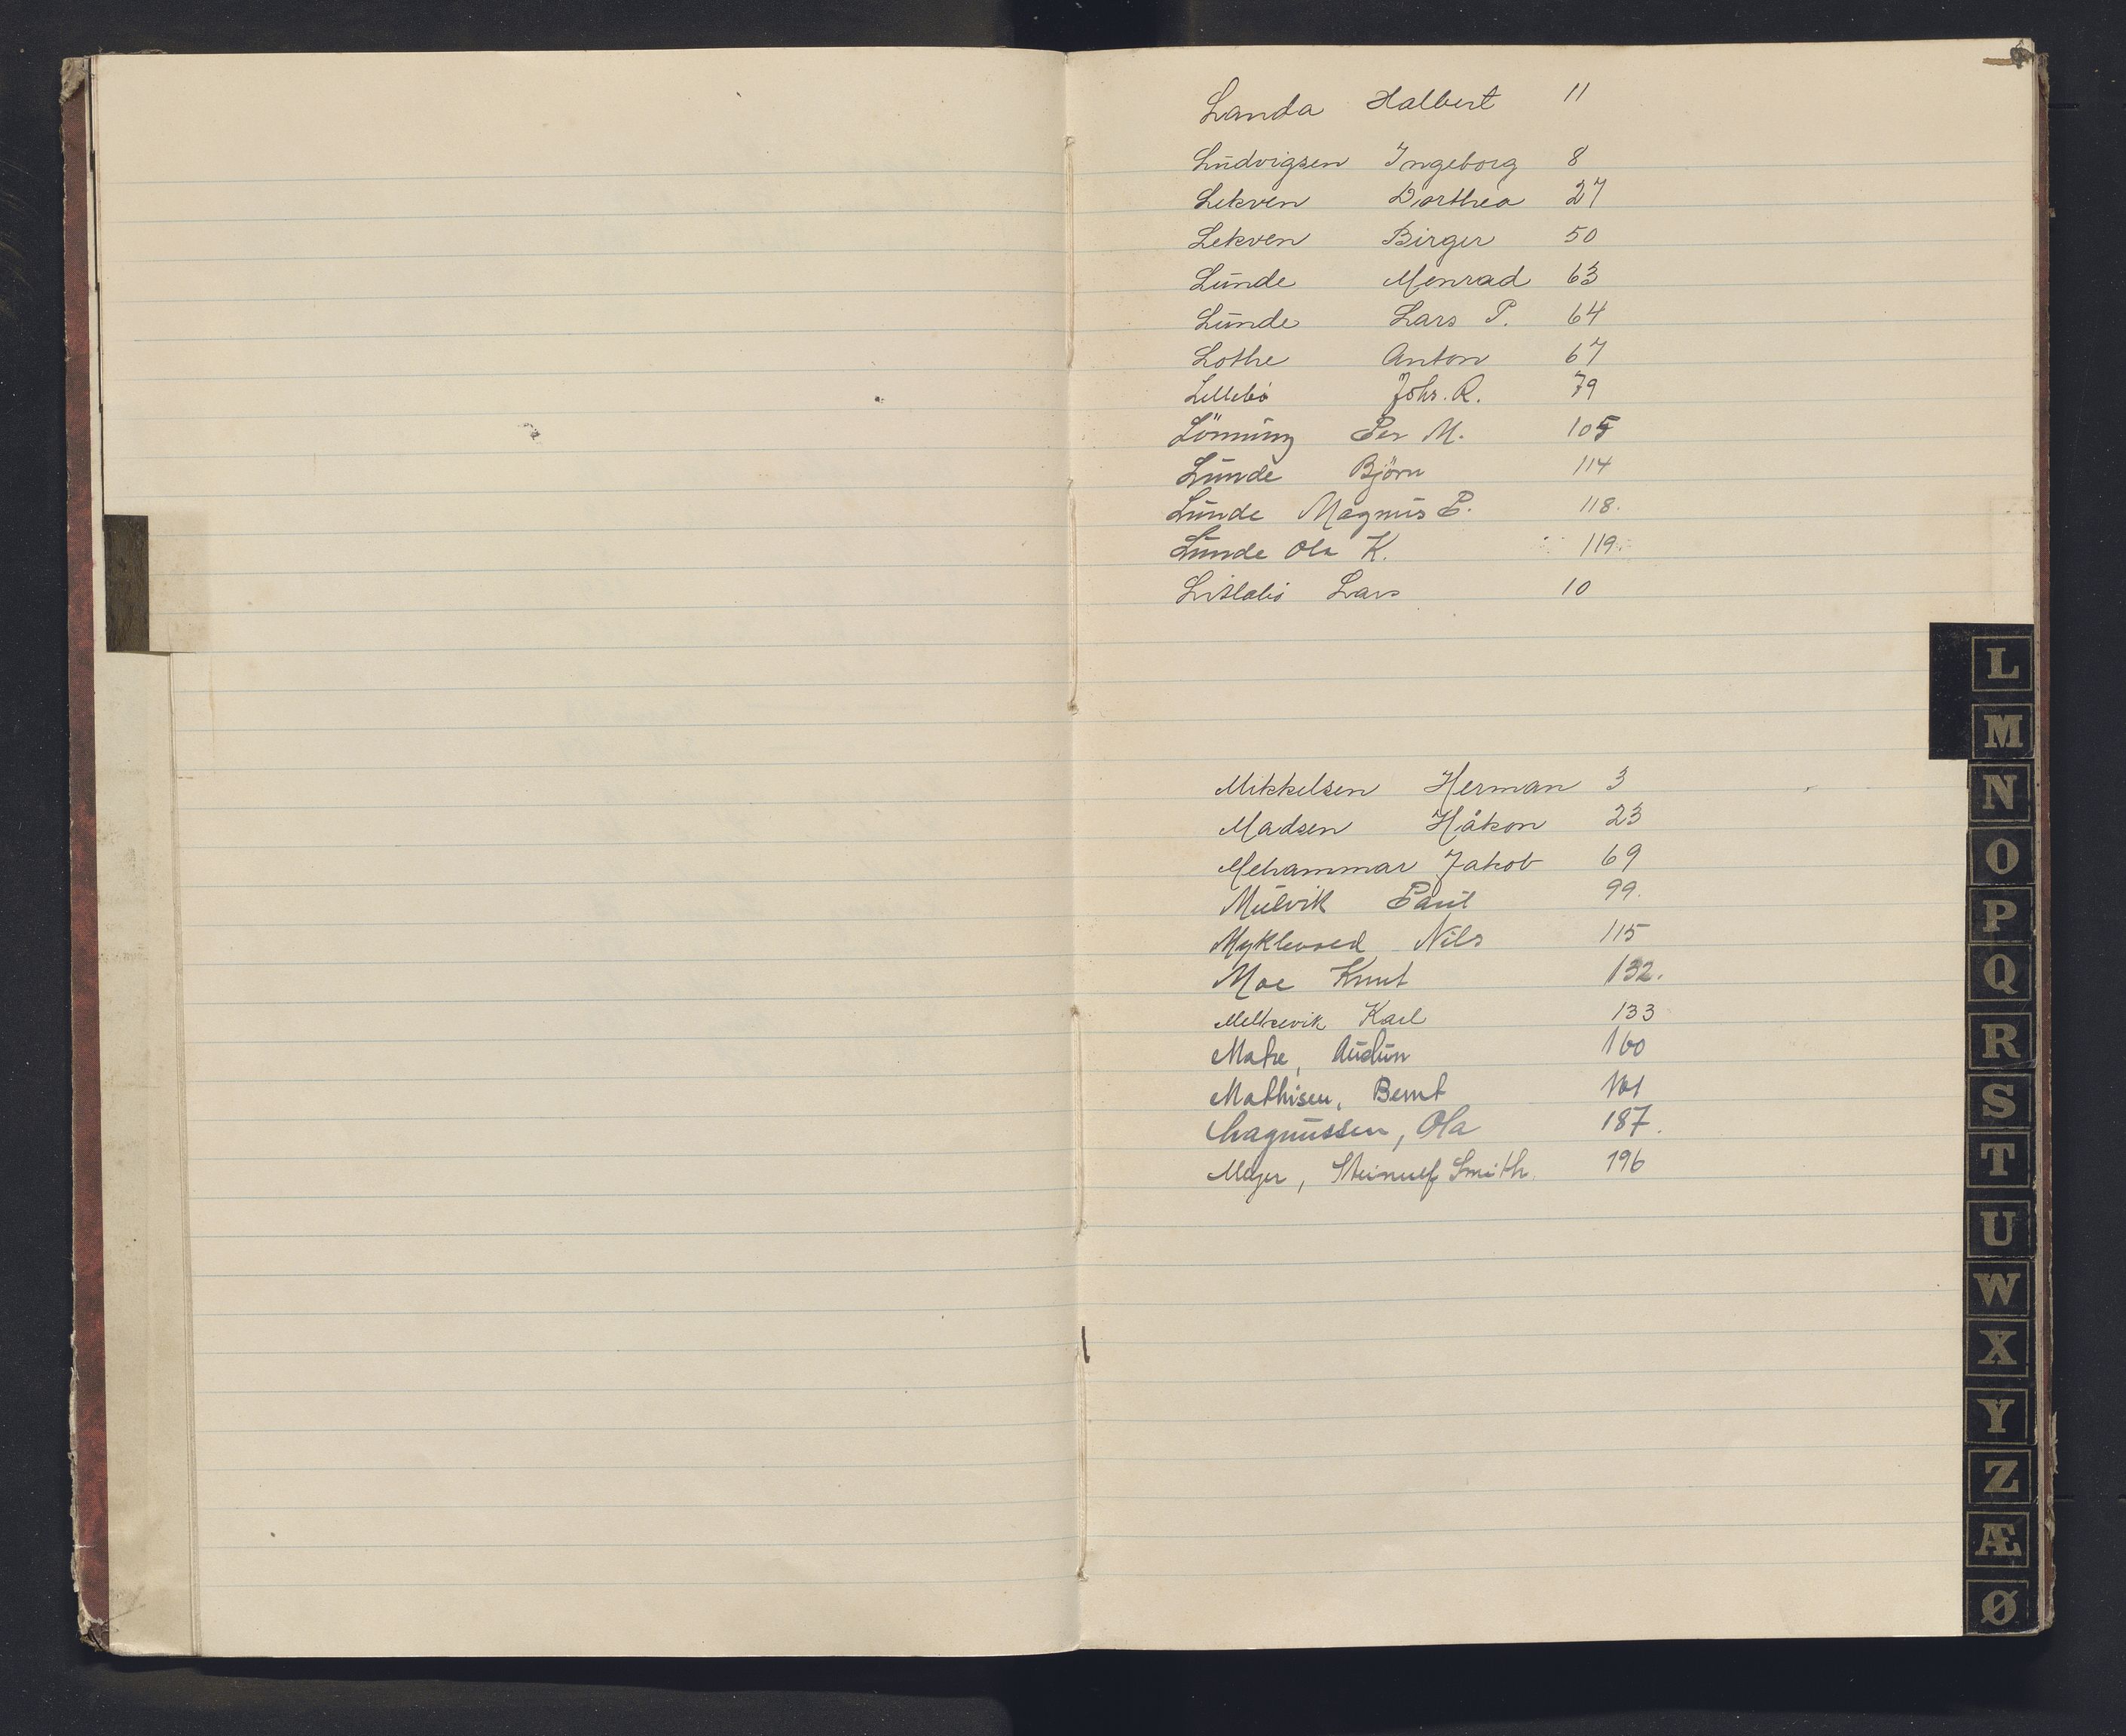 Landa Halbert 11
Ludvigsen Ingeborg 8
Lekven Dorthea 27
Lekven Birger 50
Lunde Monrad 63
Lunde Lars P. 64
Lothe Anton 67
Lillebö Johs. R. 79
Lönning Per M. 105
Lunde Björn 114
Lunde Magnus P. 118.
Lunde Ola K. 119.
Lars 10
L
M
Mikkelsen Herman 3
Madsen Håkon 23
Mehammar Jakob 69
Mulvik Paul 99.
Nils 115
Moe Knut 132.
Meltsevik Karl 133
Matre, Audun 160
Mathisen, Bernt 161
Magnussen, Ola 187.
Meyer, Steinulf Smith. 196
N
O
P
Q
R
S
T
U
W
X
Y
Z
Æ
Ø